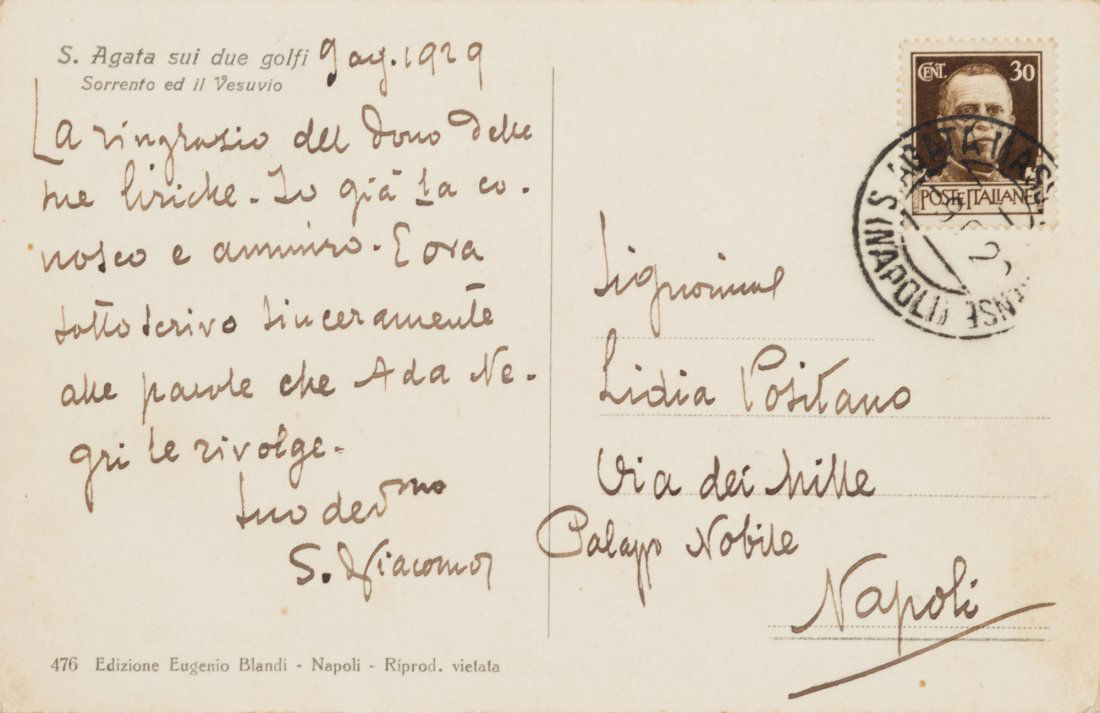 S. Agata sui due golfi 9 ag. 1929
Sorrento ed il Vesuvio
La ringrazio del dono delle
sue liriche. Io già la co-
nosco e ammiro. E ora
sottoscrivo sinceramente
alle parole che Ada Ne-
gri le rivolge.
Suo dev mo
S. Di Giacomo
476 Edizione Eugenio Blandi - Napoli - Riprod. vietata
CENT. 30
POSTE ITALIANE
S. AGATA
(NAPOLI)
Signorina
Lidia Positano
Via dei Mille
Palazzo Nobile
Napoli